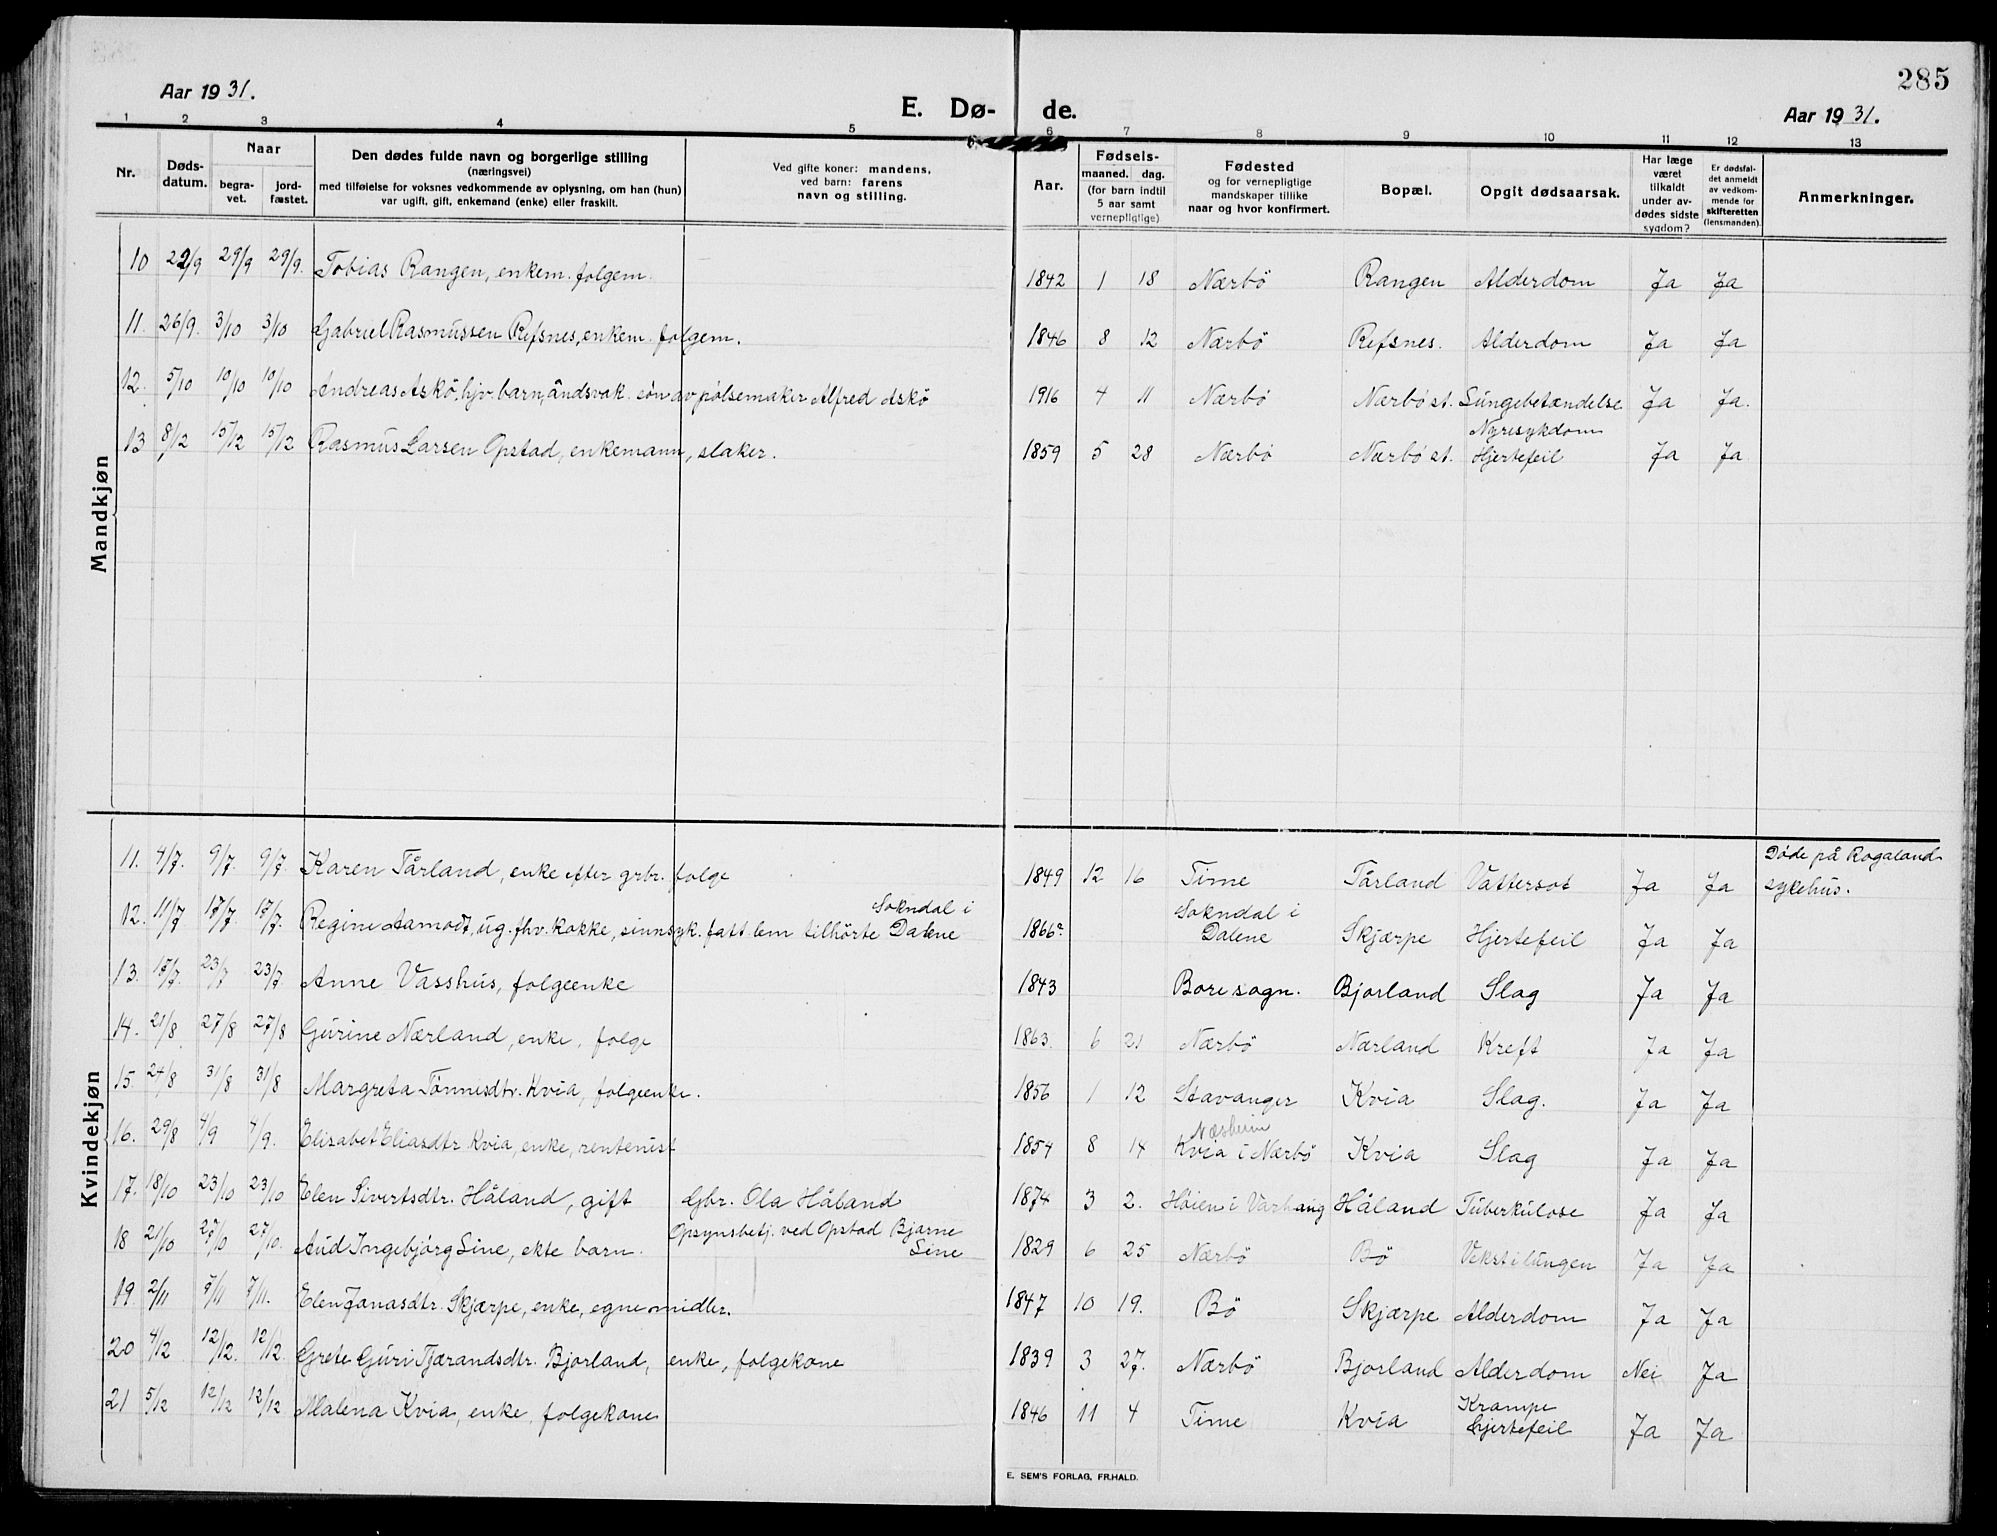 285
Aar 1931. E. Dø- de. Aar 1931.
1 2 3 4 5 6 7 8 9 10 11 12 13
Nr.
Døds-
datum.
Naar
begra-
vet.
jord-
fæstet.
Den dødes fulde navn og borgerlige stilling
(næringsvei)
med tilføielse for voksnes vedkommende av oplysning, om han (hun)
var ugift, gift, enkemand (enke) eller fraskilt.
Ved gifte koner: mandens,
ved barn: farens
navn og stilling.
Aar.
Fødsels-
maaned. dag.
(for barn indtil
5 aar samt
vernepligtige)
Fødested
og for vernepligtige
mandskaper tillike
naar og hvor konfirmert.
Bopæl.
Opgit dødsaarsak.
Har læge
været
tilkaldt
under av-
dødes sidste
sygdom?
Er dødsfal-
det anmeldt
av vedkom-
mende for
skifteretten
(lensmanden).
Anmerkninger.
Mandkjøn
10 22/9 29/9 29/9. Tobias Rangen, enkem. folgem. 1842 1 18 Nærbö Rangen Alderdom Ja Ja
11. 26/9. 3/10 3/10 Gabriel Rasmussen Refsnes, enkem. folgem. 1846 8 12 Nærbö Refsnes. Alderdom Ja Ja
12. 5/10 10/10 10/10 Andreas Askö, hjv. barn, åndsvak. sön av pölsemaker Alfred Askö 1916 4 11 Nærbö Nærbö st. Lungebetændelse Ja Ja.
13 8/12 15/12 15/12 Rasmus Larsen Opstad, enkemann, slaker. 1859 5 28 Nærbö Nærbö st. Nyresykdom
Hjertefeil Ja Ja
Kvindekjøn
11. 4/7. 9/7. 9/7. Karen Tårland, enke efter grbr. folge 1849 12 16 Time Tårland Vattersot Ja Ja Döde på Rogaland
sykehus.
12. 11/7 17/7 17/7. Regine Aamodt, ug. fhv. kokke, sinnsyk. fatt.lem tilhörte Sokndal i
Dalene 1866? Sokndal i
Dalene Skjærpe Hjertefeil Ja Ja
13. 17/7. 23/7 23/7. Anne Vasshus, folgeenke 1843 Bore sogn. Bjorland Slag Ja Ja
14. 21/8. 27/8 27/8 Gurine Nærland, enke, folge 1863. 6 21 Nærbö Nærland Kreft Ja Ja
15. 24/8 31/8 31/8 Margreta Tönnesdtr. Kvia, folgeenke. 1856 1 12 Stavanger Kvia Slag. Ja Ja
16. 29/8 4/9 4/9. Elisabet Eliasdtr Kvia, enke, rentenist 1854 8 14 Næsheim
Kvia i Nærbö Kvia Slag Ja Ja
17. 18/10 23/10 23/10 Elen Sivertsdtr. Håland, gift Gbr. Ola Håland 1874 3 2. Höien i Varhaug Håland Tuberkulose Ja Ja
18 21/10 27/10 27/10. Aud Ingebjörg Line, ekte barn. Opsynsbetj. ved Opstad Bjarne
Line 1829 6 25 Nærbö Bö Vekst i lungen Ja Ja
19. 2/11 7/11 7/11. Elen Janasdtr. Skjærpe, enke, egne midler. 1847 10 19. Bö Skjærpe Alderdom Ja Ja
20 4/12 12/12. 12/12. Grete Guri Tjærandsdtr. Bjorland, enke, folgekone 1839 3 27. Nærbö Bjorland Alderdom Nei Ja
21 5/12 12/12 12/12 Malena Kvia, enke, folgekone 1846 11 4 Time Kvia Krampe
hjertefeil Ja Ja
E. SEM'S FORLAG, FR.HALD.